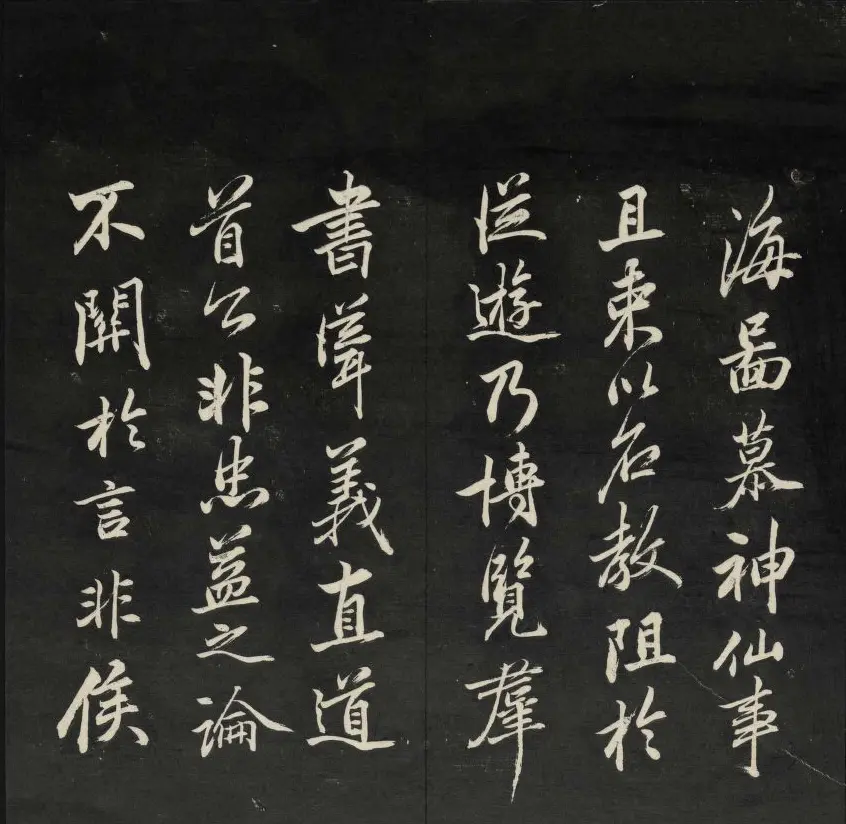 海啚慕神仙事
且束以名教阻於
從遊乃博覽羣
書聳義直道
首公非忠益之論
不關於言非侯